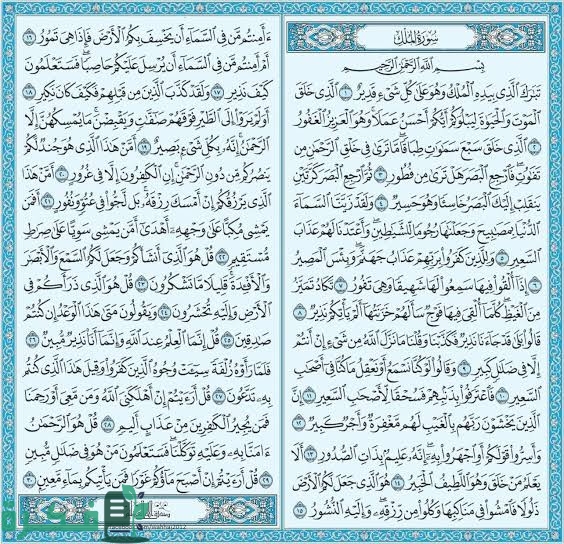 سُورَةُ المُلْكِ
بِسْمِ اللَّهِ الرَّحْمَٰنِ الرَّحِيمِ
تَبَارَكَ الَّذِي بِيَدِهِ الْمُلْكُ وَهُوَ عَلَىٰ كُلِّ شَيْءٍ قَدِيرٌ ١ الَّذِي خَلَقَ
الْمَوْتَ وَالْحَيَاةَ لِيَبْلُوَكُمْ أَيُّكُمْ أَحْسَنُ عَمَلًا ۚ وَهُوَ الْعَزِيزُ الْغَفُورُ
٢ الَّذِي خَلَقَ سَبْعَ سَمَاوَاتٍ طِبَاقًا ۖ مَّا تَرَىٰ فِي خَلْقِ الرَّحْمَٰنِ مِن
تَفَاوُتٍ ۖ فَارْجِعِ الْبَصَرَ هَلْ تَرَىٰ مِن فُطُورٍ ٣ ثُمَّ ارْجِعِ الْبَصَرَ كَرَّتَيْنِ
يَنقَلِبْ إِلَيْكَ الْبَصَرُ خَاسِئًا وَهُوَ حَسِيرٌ ٤ وَلَقَدْ زَيَّنَّا السَّمَاءَ
الدُّنْيَا بِمَصَابِيحَ وَجَعَلْنَاهَا رُجُومًا لِّلشَّيَاطِينِ ۖ وَأَعْتَدْنَا لَهُمْ عَذَابَ
السَّعِيرِ ٥ وَلِلَّذِينَ كَفَرُوا بِرَبِّهِمْ عَذَابُ جَهَنَّمَ ۖ وَبِئْسَ الْمَصِيرُ
٦ إِذَا أُلْقُوا فِيهَا سَمِعُوا لَهَا شَهِيقًا وَهِيَ تَفُورُ ٧ تَكَادُ تَمَيَّزُ
مِنَ الْغَيْظِ ۖ كُلَّمَا أُلْقِيَ فِيهَا فَوْجٌ سَأَلَهُمْ خَزَنَتُهَا أَلَمْ يَأْتِكُمْ نَذِيرٌ ٨
قَالُوا بَلَىٰ قَدْ جَاءَنَا نَذِيرٌ فَكَذَّبْنَا وَقُلْنَا مَا نَزَّلَ اللَّهُ مِن شَيْءٍ إِنْ أَنتُمْ
إِلَّا فِي ضَلَالٍ كَبِيرٍ ٩ وَقَالُوا لَوْ كُنَّا نَسْمَعُ أَوْ نَعْقِلُ مَا كُنَّا فِي أَصْحَابِ
السَّعِيرِ ١٠ فَاعْتَرَفُوا بِذَنبِهِمْ فَسُحْقًا لِّأَصْحَابِ السَّعِيرِ ١١ إِنَّ
الَّذِينَ يَخْشَوْنَ رَبَّهُم بِالْغَيْبِ لَهُم مَّغْفِرَةٌ وَأَجْرٌ كَبِيرٌ ١٢
وَأَسِرُّوا قَوْلَكُمْ أَوِ اجْهَرُوا بِهِ ۖ إِنَّهُ عَلِيمٌ بِذَاتِ الصُّدُورِ ١٣ أَلَا
يَعْلَمُ مَنْ خَلَقَ وَهُوَ اللَّطِيفُ الْخَبِيرُ ١٤ هُوَ الَّذِي جَعَلَ لَكُمُ الْأَرْضَ
ذَلُولًا فَامْشُوا فِي مَنَاكِبِهَا وَكُلُوا مِن رِّزْقِهِ ۖ وَإِلَيْهِ النُّشُورُ ١٥
ءَأَمِنتُم مَّن فِي السَّمَاءِ أَن يَخْسِفَ بِكُمُ الْأَرْضَ فَإِذَا هِيَ تَمُورُ ١٦
أَمْ أَمِنتُم مَّن فِي السَّمَاءِ أَن يُرْسِلَ عَلَيْكُمْ حَاصِبًا ۖ فَسَتَعْلَمُونَ
كَيْفَ نَذِيرِ ١٧ وَلَقَدْ كَذَّبَ الَّذِينَ مِن قَبْلِهِمْ فَكَيْفَ كَانَ نَكِيرِ ١٨
أَوَلَمْ يَرَوْا إِلَى الطَّيْرِ فَوْقَهُمْ صَافَّاتٍ وَيَقْبِضْنَ ۚ مَا يُمْسِكُهُنَّ إِلَّا
الرَّحْمَٰنُ ۚ إِنَّهُ بِكُلِّ شَيْءٍ بَصِيرٌ ١٩ أَمَّنْ هَٰذَا الَّذِي هُوَ جُندٌ لَّكُمْ
يَنصُرُكُم مِّن دُونِ الرَّحْمَٰنِ ۚ إِنِ الْكَافِرُونَ إِلَّا فِي غُرُورٍ ٢٠ أَمَّنْ هَٰذَا
الَّذِي يَرْزُقُكُمْ إِنْ أَمْسَكَ رِزْقَهُ ۚ بَل لَّجُّوا فِي عُتُوٍّ وَنُفُورٍ ٢١ أَفَمَن
يَمْشِي مُكِبًّا عَلَىٰ وَجْهِهِ أَهْدَىٰ أَمَّن يَمْشِي سَوِيًّا عَلَىٰ صِرَاطٍ
مُّسْتَقِيمٍ ٢٢ قُلْ هُوَ الَّذِي أَنشَأَكُمْ وَجَعَلَ لَكُمُ السَّمْعَ وَالْأَبْصَارَ
وَالْأَفْئِدَةَ ۖ قَلِيلًا مَّا تَشْكُرُونَ ٢٣ قُلْ هُوَ الَّذِي ذَرَأَكُمْ فِي
الْأَرْضِ وَإِلَيْهِ تُحْشَرُونَ ٢٤ وَيَقُولُونَ مَتَىٰ هَٰذَا الْوَعْدُ إِن كُنتُمْ
صَادِقِينَ ٢٥ قُلْ إِنَّمَا الْعِلْمُ عِندَ اللَّهِ وَإِنَّمَا أَنَا نَذِيرٌ مُّبِينٌ ٢٦
فَلَمَّا رَأَوْهُ زُلْفَةً سِيئَتْ وُجُوهُ الَّذِينَ كَفَرُوا وَقِيلَ هَٰذَا الَّذِي كُنتُم
بِهِ تَدَّعُونَ ٢٧ قُلْ أَرَأَيْتُمْ إِنْ أَهْلَكَنِيَ اللَّهُ وَمَن مَّعِيَ أَوْ رَحِمَنَا
فَمَن يُجِيرُ الْكَافِرِينَ مِنْ عَذَابٍ أَلِيمٍ ٢٨ قُلْ هُوَ الرَّحْمَٰنُ
ءَامَنَّا بِهِ وَعَلَيْهِ تَوَكَّلْنَا ۖ فَسَتَعْلَمُونَ مَنْ هُوَ فِي ضَلَالٍ مُّبِينٍ
٢٩ قُلْ أَرَأَيْتُمْ إِنْ أَصْبَحَ مَاؤُكُمْ غَوْرًا فَمَن يَأْتِيكُم بِمَاءٍ مَّعِينٍ ٣٠